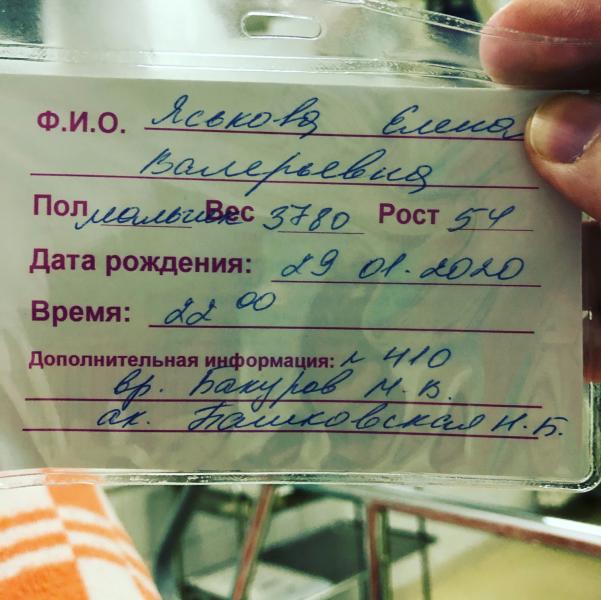 Ф.И.О. Яськова Елена
Валерьевна
Пол мальчик Вес 3780 Рост 54
Дата рождения: 29 01.2020
Время: 22 00
Дополнительная информация: 410
вр. Бакуров Н.В.
ак. Пашковская Н.Б.